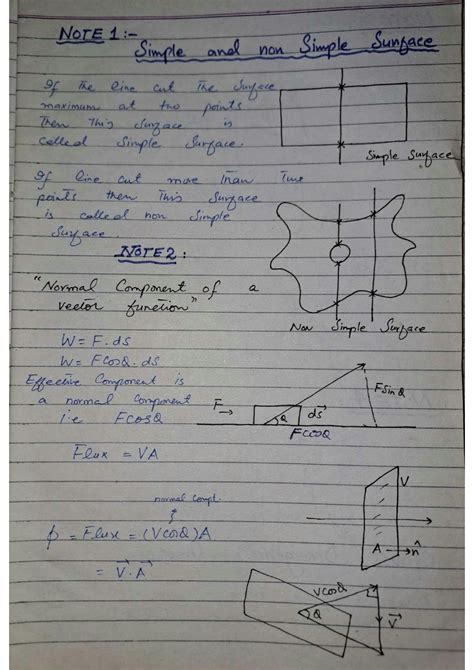 NOTE 1:-
Simple and non Simple Surface
If The line cut The Surface
maximum at two points
Then This Surface is
called Simple Surface.
Simple Surface
If line cut more Than Two
points then This Surface
is called non Simple
Surface.
Non Simple Surface
NOTE 2:
"Normal Component of a
vector function"
W = F.ds
W = FcosQ.ds
Effective Component is
a normal component
i.e FcosQ
F→
Q
ds
FsinQ
FcosQ
Flux = VA
V
A
n̂
normal Compt.
φ = Flux = (VcosQ)A
= V⃗.A⃗
VcosQ
Q
V⃗